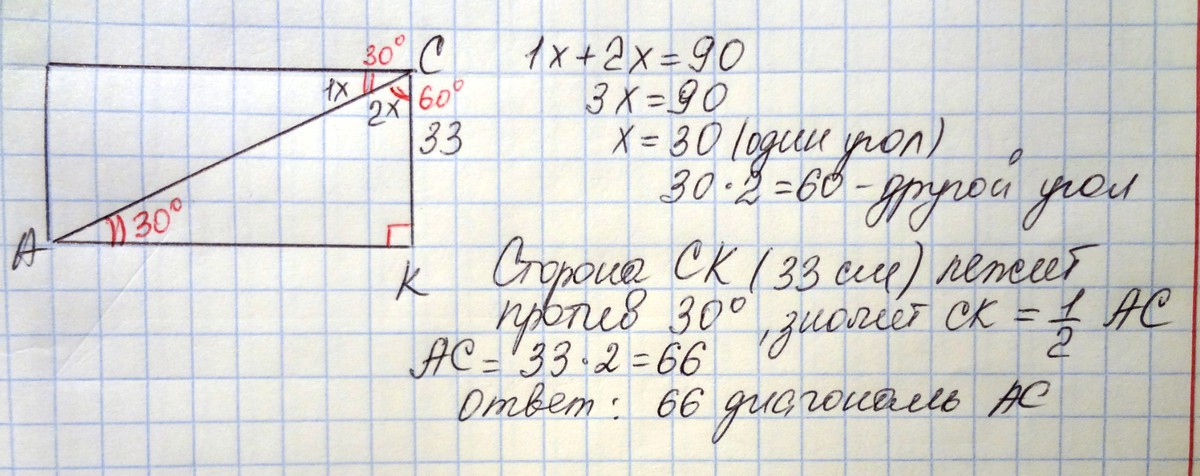 30° C
1x
2x 60°
33
A 30°
K
1x+2x=90
3x=90
x=30 (один угол)
30·2=60-другой угол
Сторона СК (33 см) лежит
против 30°, значит СК = 1/2 АС
АС= 33·2=66
Ответ: 66 диагональ АС